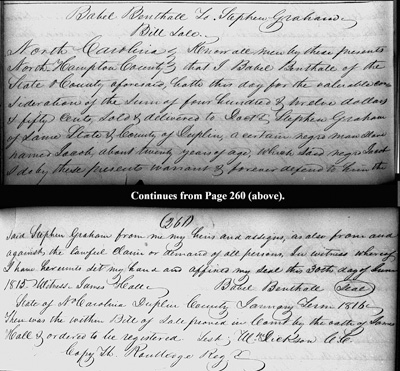 Babel Benthall To. Stephen Graham
Bill Sale.
North Carolina } Know all men by these presents
North Hampton County } that I Babel Benthall of the
State & County aforesaid, hath this day for the valuable con
sideration of the Sum of four hundred & twelve dollars
& fifty Cents, Sold & delivered to Doctr. Stephen Graham
of Same State & County of Duplin, a certain negro man Slave
named Jacob, about twenty years of age, which said negro Jacob
I do by these presents warrant & forever defend to him the
Continues from Page 260 (above).
(261)
said Stephen Graham from me my heirs and assigns, as also from and
against the lawful Claim or demand of all persons. In witness whereof
I have hereunto set my hand and affixed my seal this 30th day of June
1815. Witness. James Hall Babel Benthall (Seal)
State of No Carolina Duplin County January Term 1816
Then was the within Bill of Sale proved in Court by the oath of James
Hall & ordered to be registered Test, Wm Dickson C.C.
Copy Th. Routledge Regr